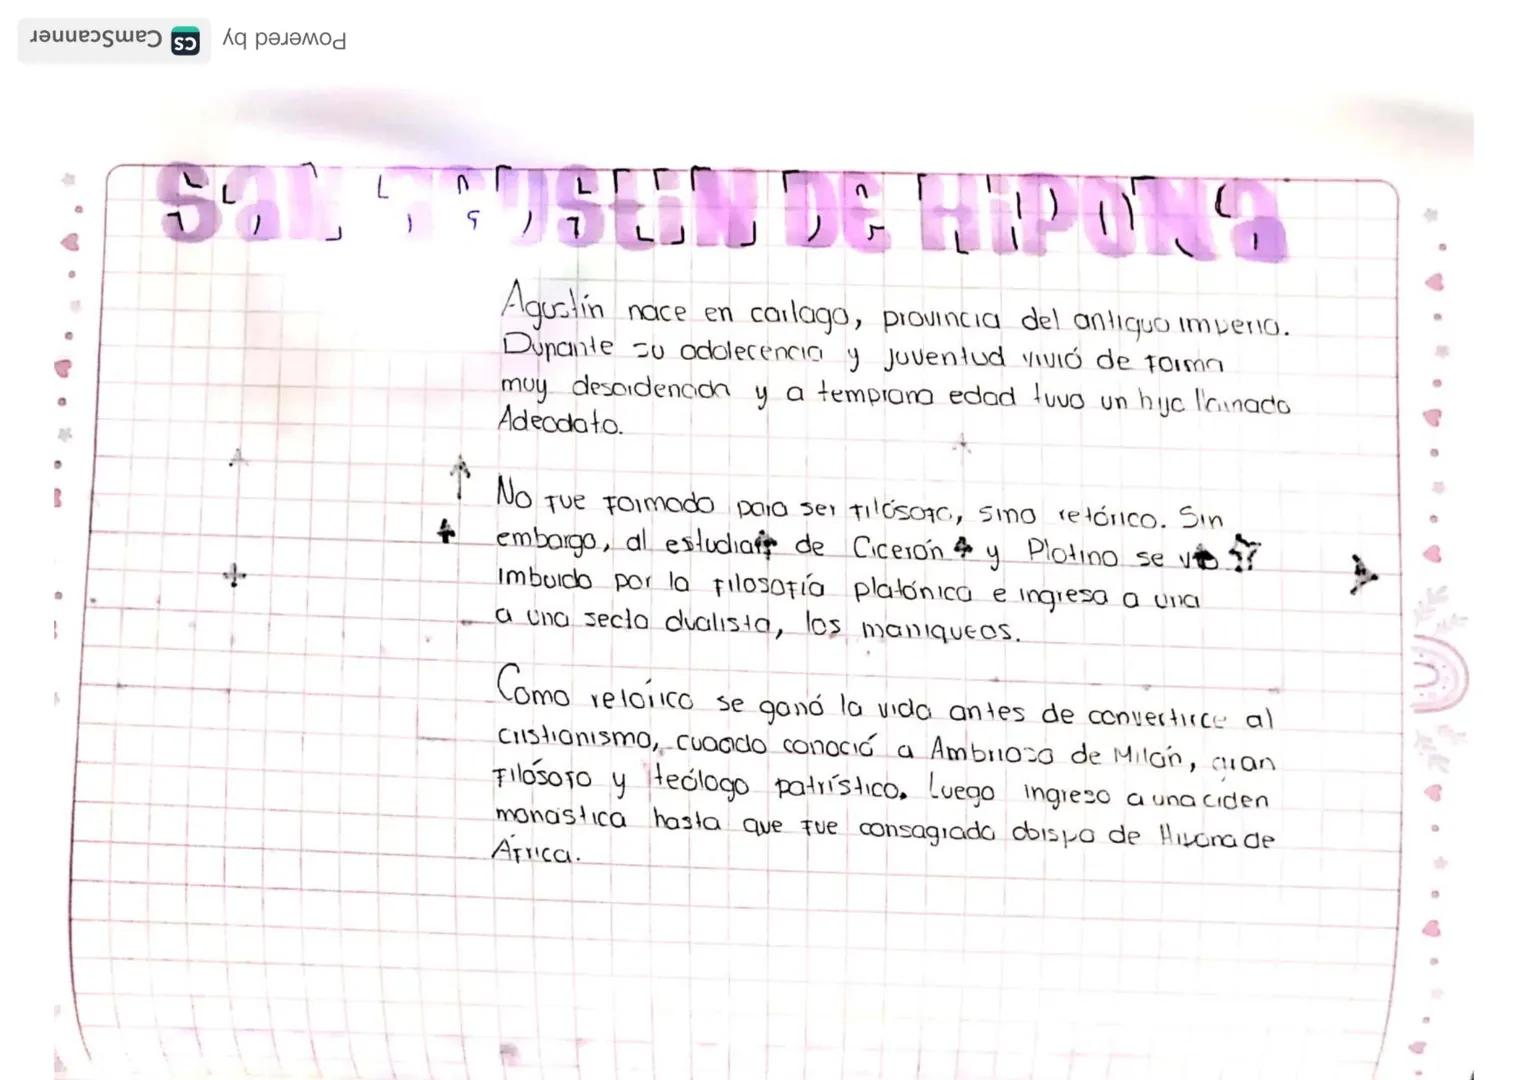 Powered by CS CamScanner
SAN AGUSTIN DE HIPONA
Agustín nace en cartago, provincia del antiguo imperio.
Durante su adolecencia y juventud vivió de forma
muy desordenada y a temprana edad tuvo un hijo llamado
Adeodato.
No fue formado para ser filósofo, sino retórico. Sin
embargo, al estudiar de Cicerón y Plotino se ve
imbuido por la filosofía platónica e ingresa a una
a una secta dualista, los maniqueos.
Como retórico se ganó la vida antes de convertirce al
cristianismo, cuando conoció a Ambrioso de Milán, gran
filósofo y teólogo patrístico. Luego ingreso a una ciden
monástica hasta que fue consagrado obispo de Hipona de
África.